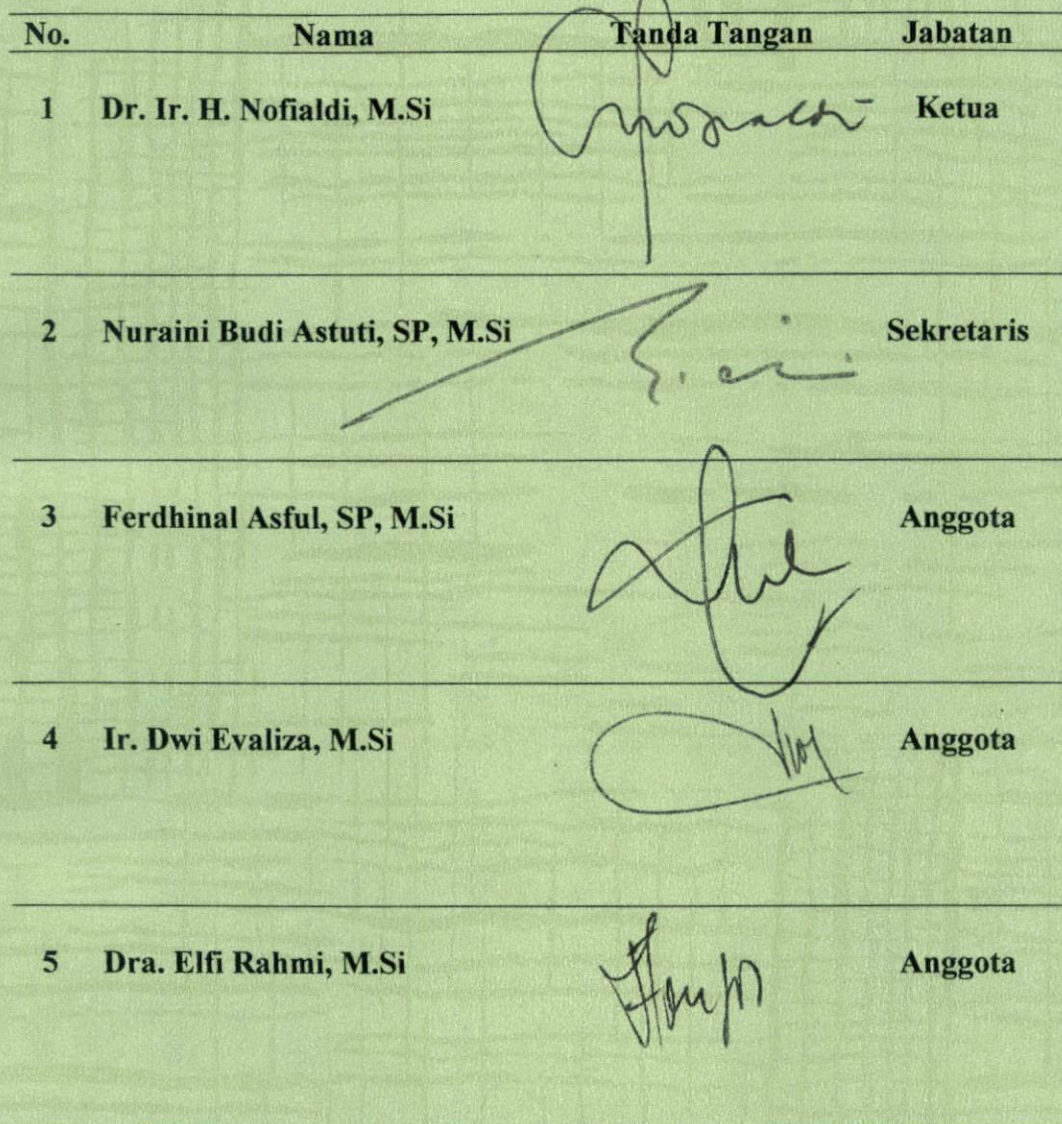 No. Nama Tanda Tangan Jabatan
1 Dr. Ir. H. Nofialdi, M.Si Ketua
2 Nuraini Budi Astuti, SP, M.Si Sekretaris
3 Ferdhinal Asful, SP, M.Si Anggota
4 Ir. Dwi Evaliza, M.Si Anggota
5 Dra. Elfi Rahmi, M.Si Anggota